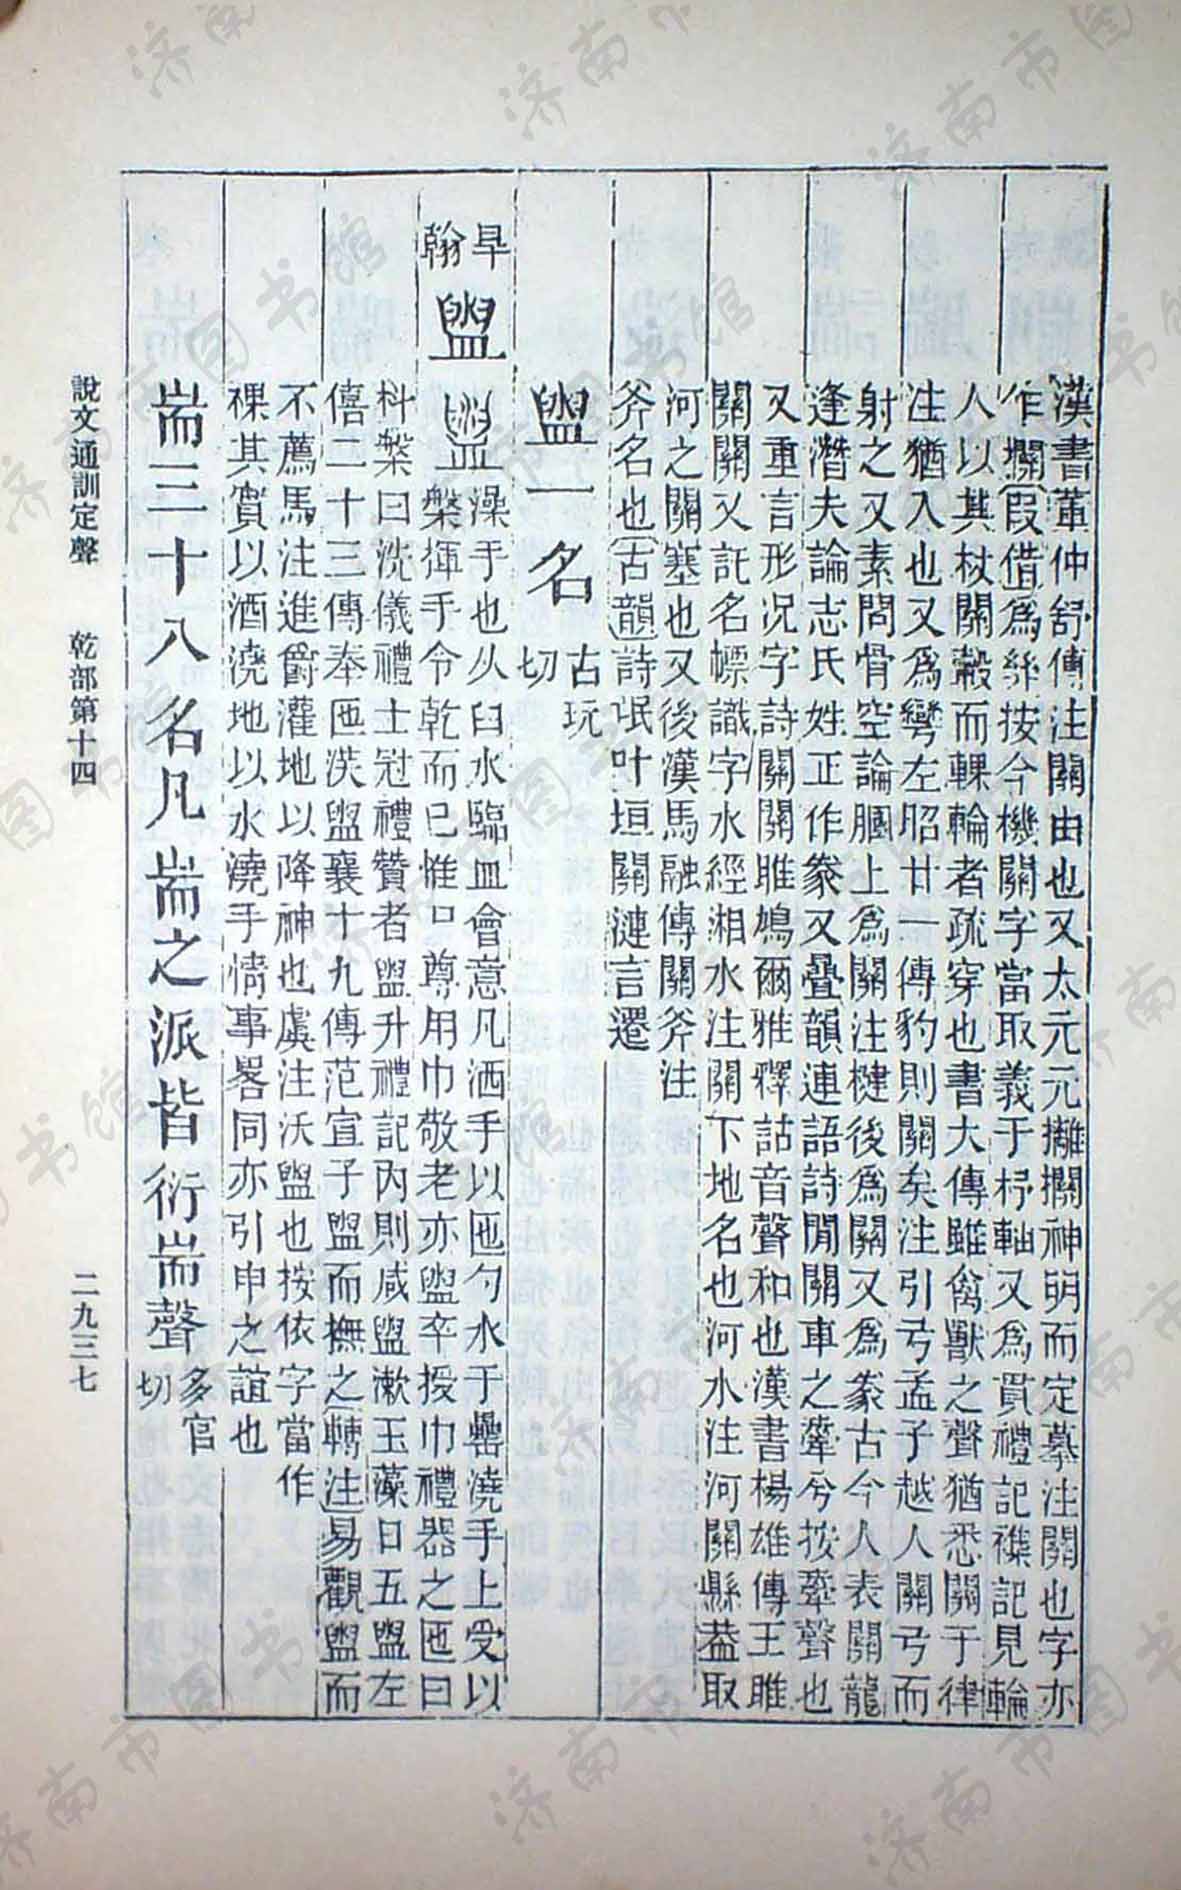 漢書董仲舒傳注關由也又太元元攡擱神明而定摹注關也字亦
作擱假借爲絲按今機關字當取義于杼軸又爲貫禮記襍記見輪
人以其杖關轂而輠輪者疏穿也書大傳雖禽獸之聲猶悉關于律
注猶入也又爲彎左昭廿一傳豹則關矣注引弓孟子越人關弓而
射之又素問骨空論膕上爲關注楗後爲關又爲豢古今人表關龍
逢潛夫論志氏姓正作豢又疊韻連語詩閒關車之舝兮按舝聲也
又重言形況字詩關關雎鳩爾雅釋詁音聲和也漢書楊雄傳王雎
關關又託名幖識字水經湘水注關下地名也河水注河關縣葢取
河之關塞也又後漢馬融傳關斧注
斧名也古韻詩氓叶垣關漣言遷
盥一名 古玩切
旱翰
盥
盥 澡手也从臼水臨皿會意凡洒手以匜勺水于罍澆手上受以
槃揮手令乾而已惟尸尊用巾敬老亦盥卒授巾禮器之匜曰
枓槃曰洗儀禮士冠禮贊者盥升禮記內則咸盥漱玉藻日五盥左
僖二十三傳奉匜沃盥襄十九傳范宣子盥而撫之轉注易觀盥而
不薦馬注進爵灌地以降神也虞注沃盥也按依字當作
祼其實以酒澆地以水澆手情事畧同亦引申之誼也
耑三十八名凡耑之派皆衍耑聲 多官切
說文通訓定聲 乾部第十四 二九三七
济南市图书馆